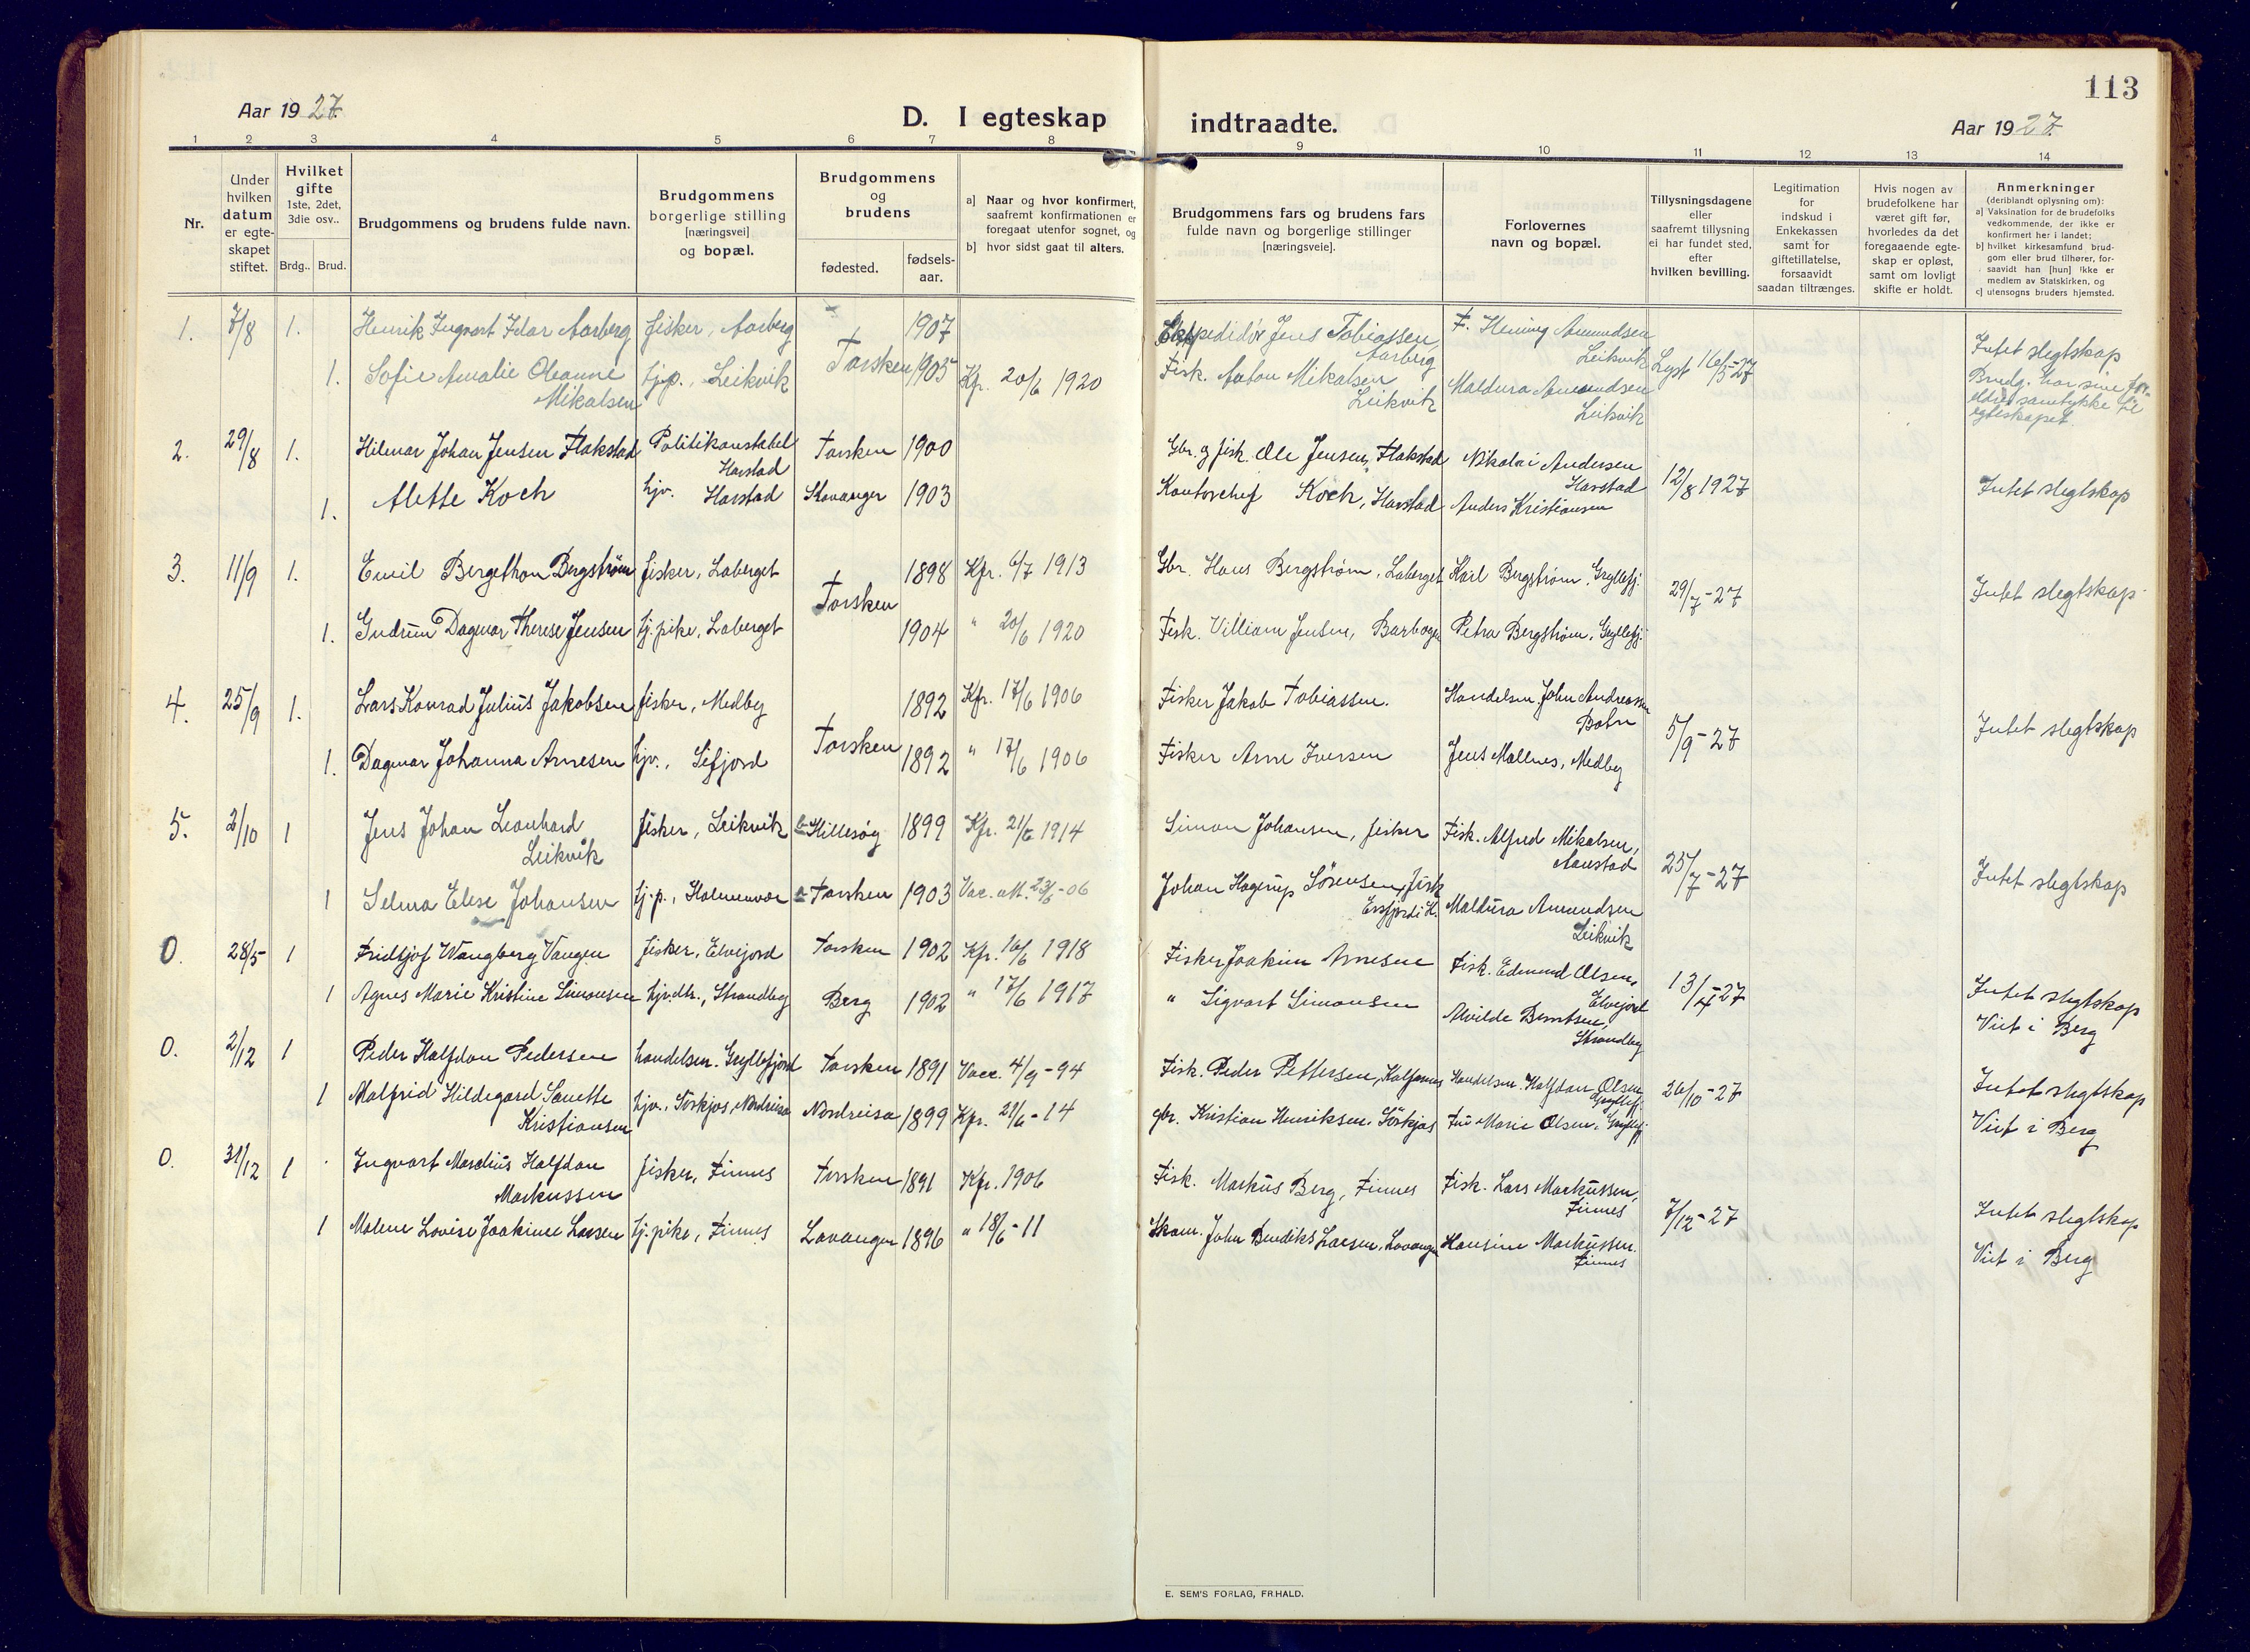 113
Aar 1927.
D. I egteskap indtraadte.
Aar 1927.
1 2 3 4 5 6 7 8 9 10 11 12 13 14
Nr.
Under hvilken datum er egte-skapet stiftet.
Hvilket gifte 1ste, 2det, 3die osv..
Brdg.. Brud.
Brudgommens og brudens fulde navn.
Brudgommens borgerlige stilling [næringsvei] og bopæl.
Brudgommens og brudens
fødested. fødsels-aar.
a) Naar og hvor konfirmert, saafremt konfirmationen er foregaat utenfor sognet, og
b) hvor sidst gaat til alters.
Brudgommens fars og brudens fars fulde navn og borgerlige stillinger [næringsveie].
Forlovernes navn og bopæl.
Tillysningsdagene eller saafremt tillysning ei har fundet sted, efter hvilken bevilling.
Legitimation for indskud i Enkekassen samt for giftetillatelse, forsaavidt saadan tiltrænges.
Hvis nogen av brudefolkene har været gift før, hvorledes da det foregaaende egte-skap er opløst, samt om lovligt skifte er holdt.
Anmerkninger (deriblandt oplysning om):
a) Vaksination for de brudefolks vedkommende, der ikke er konfirmert her i landet;
b) hvilket kirkesamfund brud-gom eller brud tilhører, for-saavidt han [hun] ikke er medlem av Statskirken, og
c) utensogns bruders hjemsted.
1. 7/8 1. Henrik Ingvart Idar Aarberg fisker, Aarberg 1907 Ekspeditør Jens Tobiassen, Aarberg F. Hening Amundsen Leikvik Lyst 16/5-27 Intet slegtskap
1. Sofie Amalie Oleanne Mikalsen hj.p., Leikvik Torsken 1905 Kfr. 20/6 1920 Fisk. Anton Mikalsen Leikvik Maldura Amundsen Leikvik Brudg. har sine for-eldres samtykke til egteskapet.
2. 29/8 1. Hilmar Johan Jensen Flakstad Politikonstabel Harstad Torsken 1900 Gbr. og fisk. Ole Jensen, Flakstad Nikolai Andersen Harstad 12/8 1927 Intet slegtskap
1. Alette Koch hjv. Harstad Stavanger 1903 Kontorchef Koch, Harstad Anders Kristiansen
3. 11/9 1. Emil Bergethon Bergstrøm fisker, Laberget Torsken 1898 Kfr. 6/7 1913 Gbr. Hans Bergstrøm, Laberget Karl Bergstrøm, Gryllefj. 29/7-27 Intet slegtskap
1. Gudrun Dagmar Therese Jensen hj.pike, Laberget 1904 " 20/6 1920 Fisk. Villiam Jensen, Barbogen Petra Bergstrøm, Gryllefj.
4. 25/9 1. Lars Konrad Julius Jakobsen fisker, Medby Torsken 1892 Kfr. 17/6 1906 Fisker Jakob Tobiassen. Handelsm. John Andreassen Botn 5/9-27 Intet slegtskap
1. Dagmar Johanna Arnesen hjv., Sifjord 1892 " 17/6 1906 Fisker Arne Iversen Jens Mallnes, Medby
5. 2/10 1 Jens Johan Leonhard Leikvik fisker, Leikvik Hillesøy 1899 Kfr. 21/6 1914 Simon Johansen, fisker Fisk. Alfred Mikalsen, Aanstad 25/7-27 Intet slegtskap
1 Selma Elise Johansen hj.p., Holmenvær Torsken 1903 Vac. att. 23/6-06 Johan Hagerup Sørensen, fisk Ersfjord i H. Maldura Amundsen Leikvik
0. 28/5 1 Fridtjof Wangberg Vangen fisker, Elvejord Torsken 1902 Kfr. 16/6 1918 Fisker Joakim Arnesen Fisk. Edmund Olsen, Elvejord 13/4-27 Intet slegtskap
1 Agnes Marie Kristine Simonsen hjv.dtr., Strandby Berg 1902 " 17/6 1917 " Sigvart Simonsen Alvilde Berntsen, Strandby Viet i Berg
0. 2/12 1 Peder Halfdan Pedersen handelsm. Gryllefjord Torsken 1891 Vacc. 4/9-94 Fisk. Peder Pettersen, Kalfarnes Handelsm. Halfdan Olsen Gryllefj. 26/10-27 Intet slegtskap
1 Malfrid Hildegard Sanette Kristiansen hjv., Sørkjos, Nordreisa Nordreisa 1899 Kfr. 21/6-14 gbr. Kristian Henriksen, Sørkjos Fru Marie Olsen, Gryllefj. Viet i Berg
0. 31/12 1 Ingvart Mardius Halfdan Markussen fisker, Finnes Torsken 1891 Kfr. 1906 Fisk. Markus Berg, Finnes Fisk. Lars Markussen, Finnes 7/12-27 Intet slegtskap
1 Malene Lovise Joakime Larsen hj.pike, Finnes Lavangen 1896 " 18/6-11 Skom. John Bendiks Larsen, Lavangen Hansine Markussen. Finnes Viet i Berg
E. SEM'S FORLAG, FR.HALD.